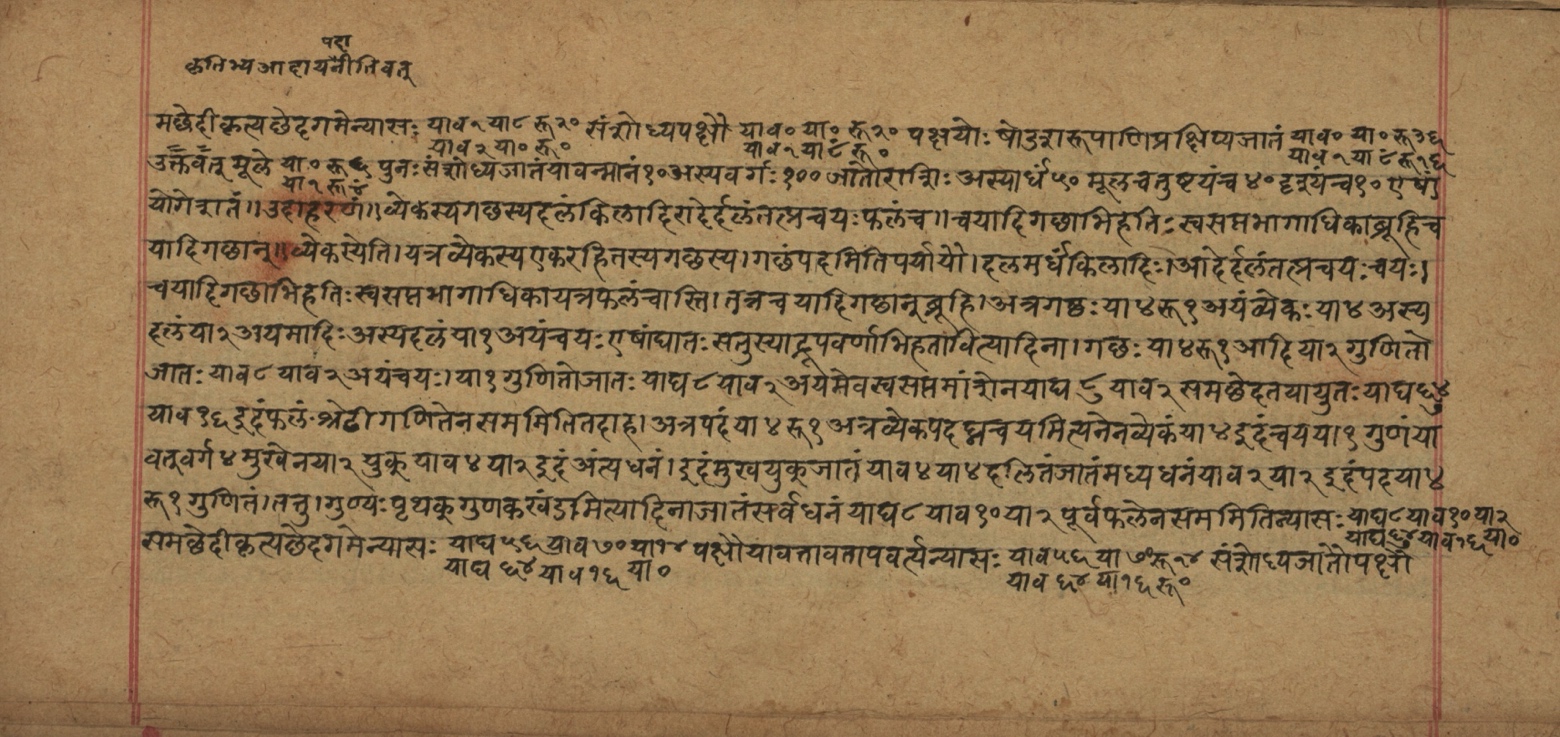 पदा
कृतिभ्य आदायनीतिवत्
मछेदीकृत्य छेदगमेन्यासः याव १ या ८ रू २० संशोध्यपक्षौ याव ० या ० रू २० पक्षयोः षोडशरूपाणिप्रक्षिप्यजातं याव ० या ० रू ३६
याव २ या ० रू ० याव १ या ८ं रू ० याव १ या ८ं रू १६
उक्तवत् मूले या ० रू ६ पुनः संशोध्यजातंयावन्मानं १० अस्यवर्गः १०० जातोराशिः अस्यार्धं ५० मूलचतुष्टयंच ४० दृश्यंच १० एषां
या १ रू ४ं
योगेशतं ॥ उदाहरणं ॥ व्येकस्यगछस्यदलंकिलादिरादेर्दलंतत्प्रचयः फलंच ॥ चयादिगछाभिहतिः स्वसप्तभागाधिकाब्रूहिच
यादिगछान् ॥ व्येकस्येति । यत्रव्येकस्यएकरहितस्यगछस्य । गछंपदमितिपर्यायौ । दलमर्धंकिलादिः । आदेर्दलंतत्प्रचयः चयः ।
चयादिगछाभिहतिः स्वसप्तभागाधिकायत्रफलंचास्ति । तत्रचयादिगछान्ब्रूहि । अत्रगछः या ४ रू १ अयंव्येकः या ४ अस्य
दलं या २ अयमादिः अस्यदलं या १ अयंचयः एषांघातः सतुस्याद्रूपवर्णाभिहतावित्यादिना । गछः या ४ रू १ आदि या २ गुणितो
जातः याव ८ याव २ अयंचयः । या १ गुणितोजातः याघ ८ याव २ अयमेवस्वसप्तमांशेनयाघ ८ याव २ समछेदतयायुतः याघ ६४
याव १६ इदंफलं श्रेढीगणितेनसममितितदाह । अत्रपदं या ४ रू १ अत्रव्येकपदघ्नचयमित्यनेनव्येकं या ४ इदंचय या १ गुणंया
वत्वर्ग ४ मुखेनया २ युक् याव ४ या २ इदं अंत्यधनं । इदंमुखयुक्जातं याव ४ या ४ दलितंजातंमध्यधनंयाव २ या २ इदंपदया ४
रू १ गुणितं । तत्तु । गुण्यः पृथक् गुणकखंडमित्यादिनाजातंसर्वधनं याघ ८ याव १० या २ पूर्वफलेनसममितिन्यासः याघ ८ याव १० या २
याघ ६४ याव १६ या ०
समछेदीकृत्यछेदगमेन्यासः याघ ५६ याव ७० या १४ पक्षौयावत्तावतापवर्त्यन्यासः याव ५६ या ७० रू १४ संशोध्यजातौपक्षौ
याघ ६४ याव १६ या ० याव ६४ या १६ रू ०